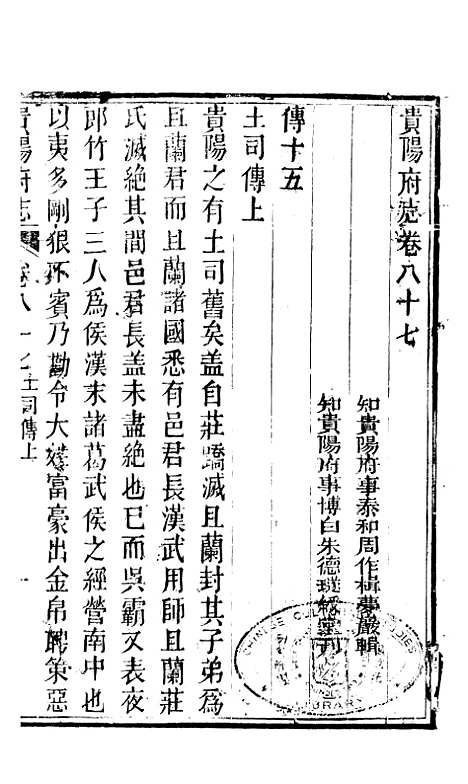 貴陽府志卷八十七
知貴陽府事泰和周作楫夢巖輯
知貴陽府事博白朱德璲綏堂刊
傳十五
土司傳上
貴陽之有土司舊矣盖自莊蹻滅且蘭封其子弟爲
且蘭君而且蘭諸國悉有邑君長漢武用師且蘭莊
氏滅絶其間邑君長盖未盡絶也已而吳霸又表夜
郎竹王子三人爲侯漢末諸葛武侯之經營南中也
以夷多剛狠不賓乃勸令大姓富豪出金帛聘策惡
貴陽府志 卷八十七 土司傳上
CHINESE
LIBRARY